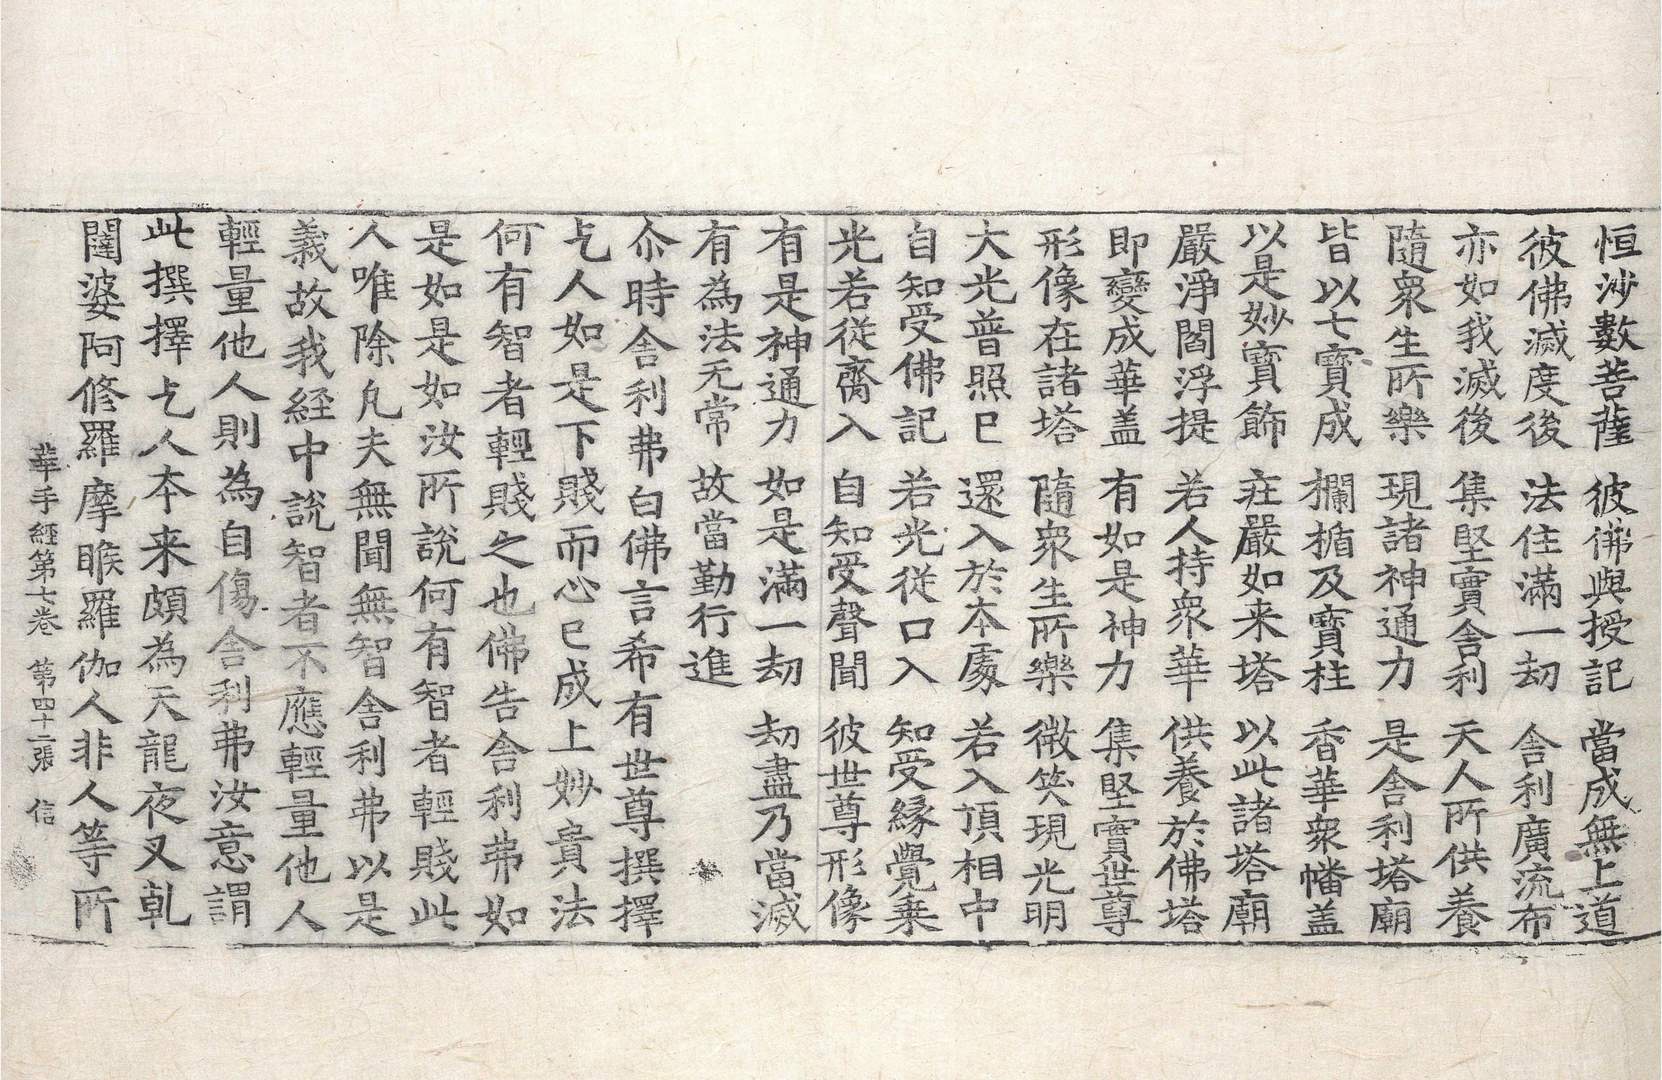 恒沙數菩薩 彼佛與授記 當成無上道
彼佛滅度後 法住滿一劫 舍利廣流布
亦如我滅後 集堅實舍利 天人所供養
隨衆生所樂 現諸神通力 是舍利塔廟
皆以七寶成 欄楯及寶柱 香華衆幡盖
以是妙寶飾 莊嚴如来塔 以此諸塔廟
嚴淨閻浮提 若人持衆華 供養於佛塔
即變成華盖 有如是神力 集堅實世尊
形像在諸塔 隨衆生所樂 微笑現光明
大光普照已 還入於本處 若入頂相中
自知受佛記 若光從口入 知受緣覺乗
光若從齊入 自知受聲聞 彼世尊形像
有是神通力 如是滿一劫 劫盡乃當滅
有為法无常 故當勤行進
尒時舍利弗白佛言希有世尊撰擇
乞人如是下賤而心已成上妙貴法
何有智者輕賤之也佛告舍利弗如
是如是如汝所說何有智者輕賤此
人唯除凡夫無聞無智舍利弗以是
義故我經中說智者不應輕量他人
輕量他人則為自傷舍利弗汝意謂
此撰擇乞人本来頗為天龍夜叉乹
闥婆阿修羅摩睺羅伽人非人等所
華手經第七卷 第四十二張 信